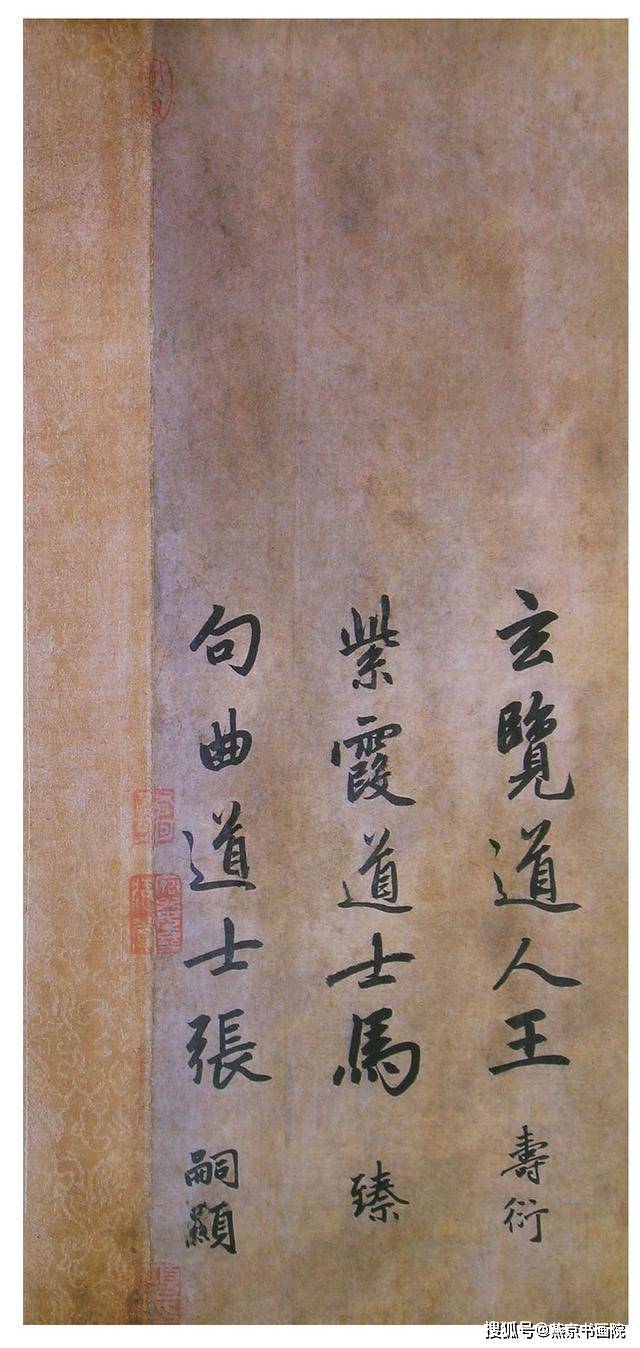 玄覽道人王壽衍
紫霞道士馬臻
句曲道士張嗣顯
搜狐号@燕京书画院